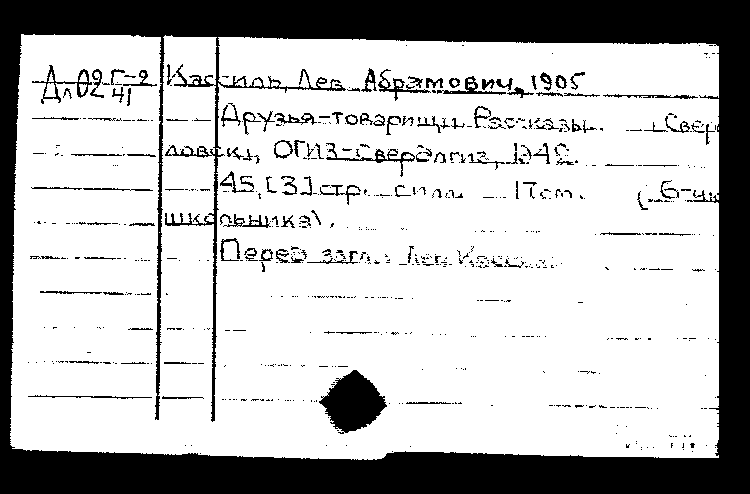 Дл02 Г-2/41 Кассиль, Лев Абрамович, 1905
Друзья-товарищи. Рассказы. [Сверд
ловск], ОГИЗ-Свердлгиз, 1942.
45,[3]стр. с илл. 17см. (Б-чка
школьника).
Перед загл.: Лев Кассиль.